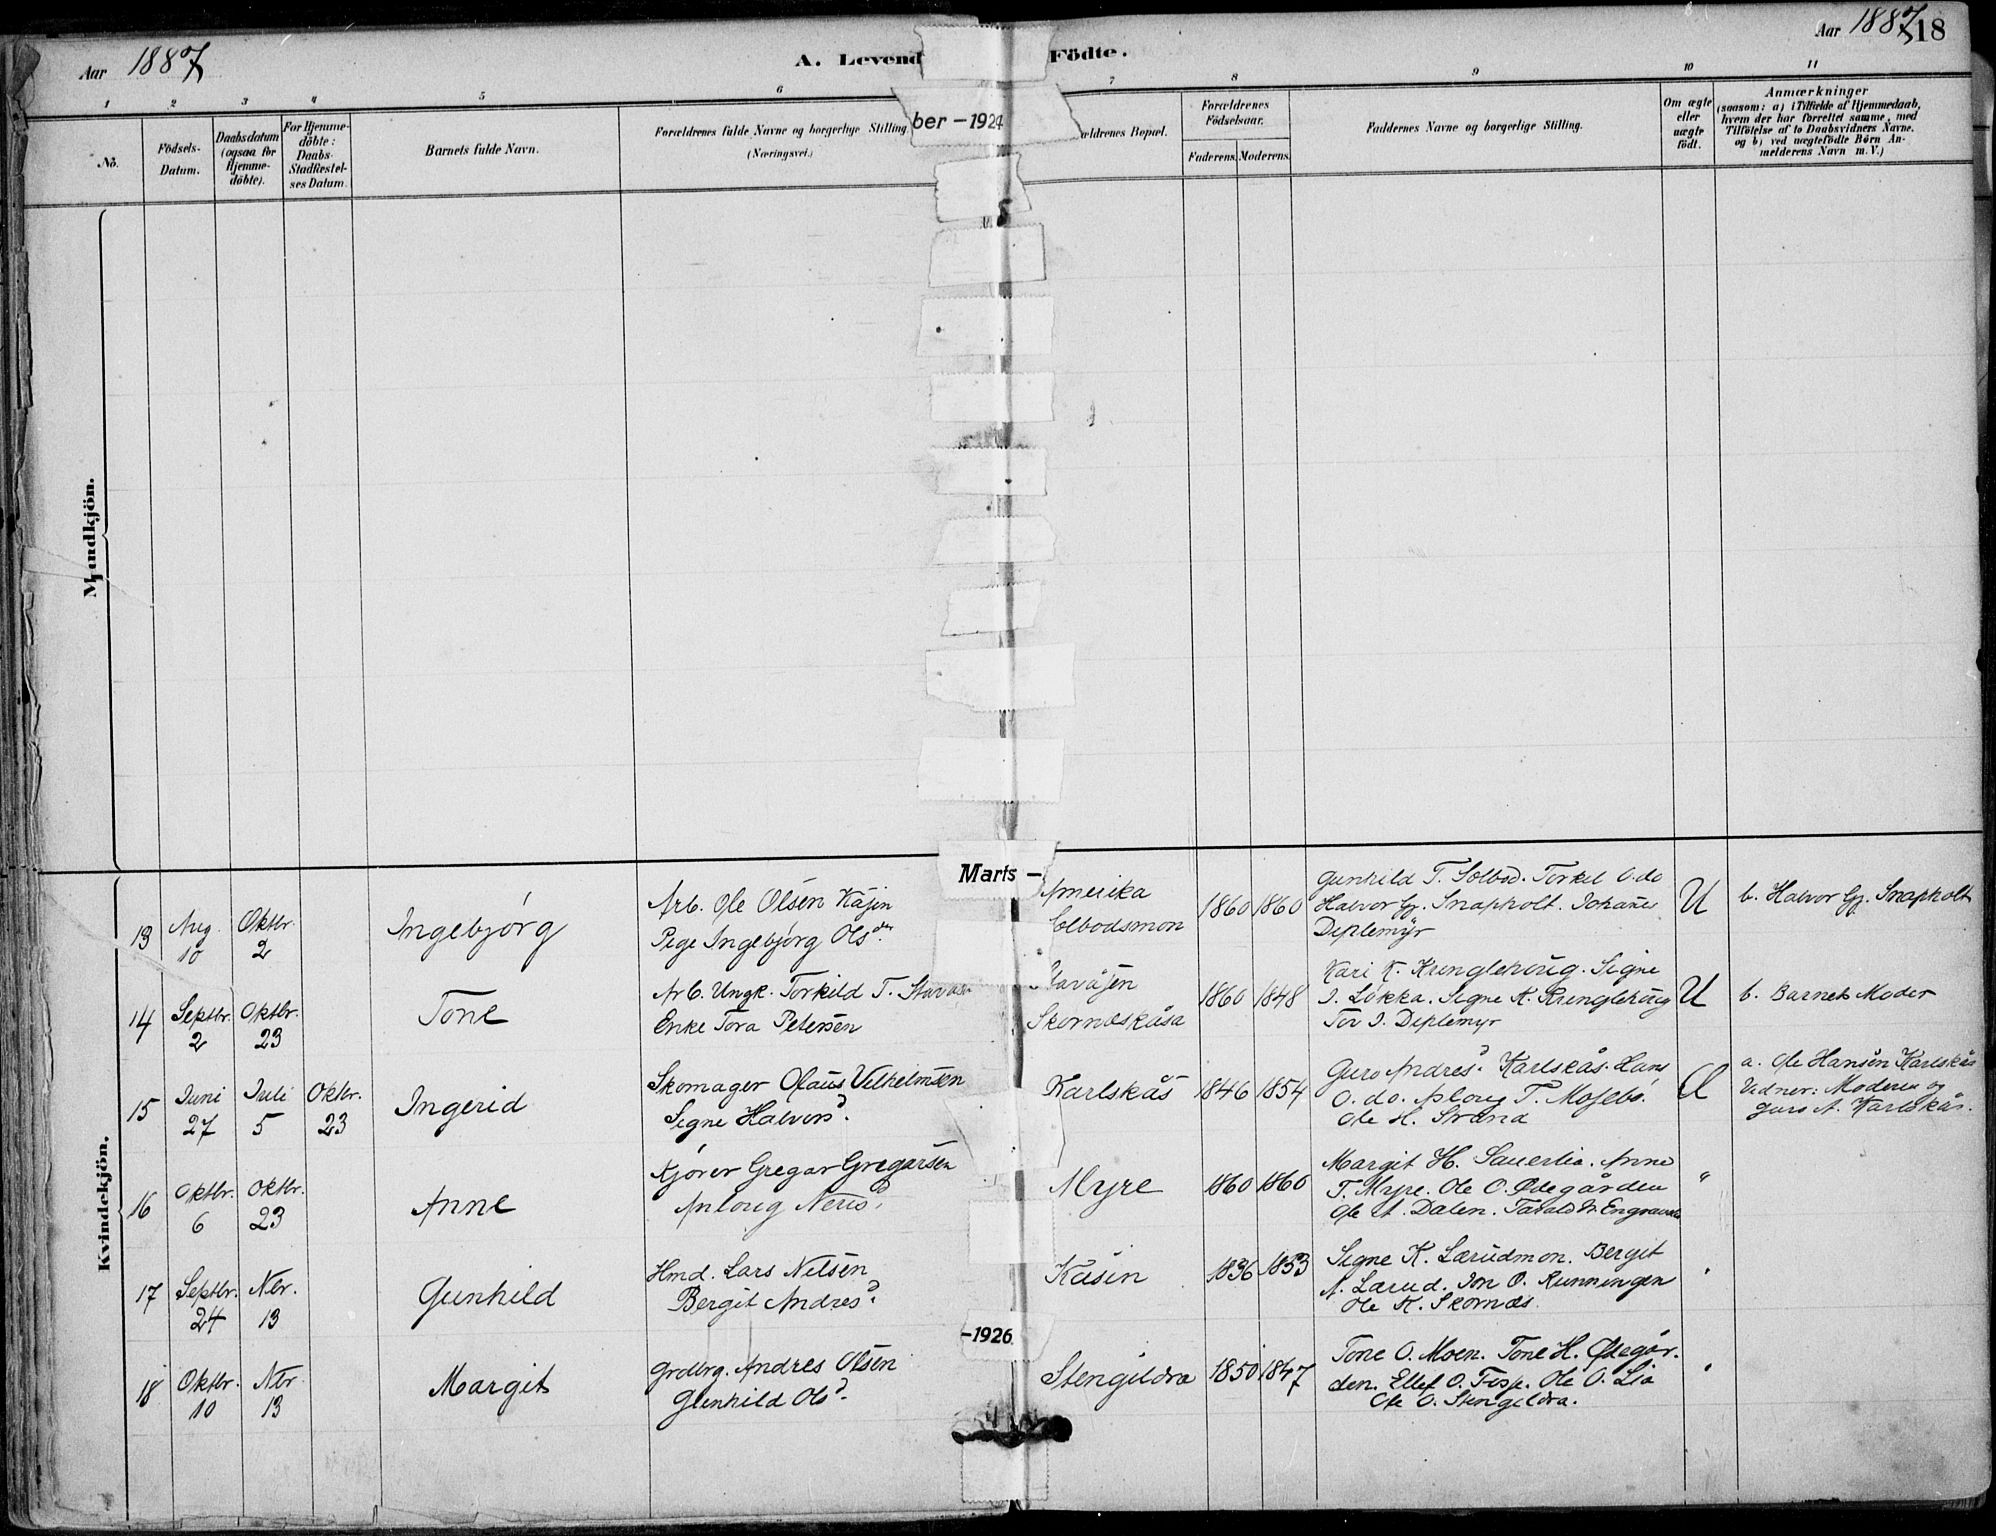 Aar 1887
A. Levend
Födte.
Aar 1887
18
1 2 3 4 5 6 7 8 9 10 11
No.
Födsels-
Datum.
Daabsdatum
(ogsaa for
Hjemme-
döbte).
For Hjemme-
döbte:
Daabs-
Stadfestel-
ses Datum.
Barnets fulde Navn.
Forældrenes fulde Navne og borgerlige Stilling
(Næringsvei.)
ber – 1924
ældrenes Bopæl.
Forældrenes
Födselsaar.
Faderens. Moderens.
Faddernes Navne og borgerlige Stilling.
Om ægte
eller
uægte
födt.
Anmærkninger
(saasom: a) i Tilfælde af Hjemmedaab,
hvem der har forrettet samme, med
Tilföielse af to Daabsvidners Navne.
og b) ved uægtefödte Börn An-
melderens Navn m. V.)
Mandkjön.
Kvindekjön.
Marts –
13 Aug. 10 Oktbr. 2 Ingebjørg
Arb. Ole Olsen Kåjin
Pige Ingebjørg Olsdtr.
Amerika
olbodsmon
1860 1860
Gunhild T. Solbod. Torkel O. do
Halvor Gj. Snapholt. Johanes
Diplemyr
U
b. Halvor Gj. Snapholt
14 Septbr. 2 Oktbr. 23 Tone
Arb. Ungk. Torkild T. Stavås
Enke Tora Petersen
Stavåjen
Skornæskåsa
1860 1848
Kari K. Kringlehoug. Signe
J. Løkka. Signe K. Kringlehoug
Tor J. Diplemyr
U
b. Barnets Moder
15 Juni 27 Juli 5 Oktbr. 23 Ingerid
Skomager Olaus Vilhelmsen
Signe Halvorsd.
Karlskås
1846 1854
Guro Andresd. Karlskås. Hans
O. do. Aaloug T. Mosebø.
Ole H. Strand
a. Ole Hansen Karlskås
Vidner: Moderen og
Guro A. Karlskås.
16 Oktbr. 6 Oktbr. 23 Anne
Kjører Gregar Gregarsen
Anloug Nerisd.
Myre
1860 1860
Margit H. Sauerlia. Anne
T. Myre. Ole O. Ødegården
Ole A. Dalen.
"
17 Septbr. 24 Nbr. 13 Gunhild
Hmd. Lars Nilsen
Bergit Andresd.
Kåsin
1836 1853
Signe K. Lærudmon. Bergit
N. Lærud. Jon O. Runningen
Ole K. Skornæs.
"
–1926
18 Oktbr. 10 Nbr. 13 Margit
Grdbrg. Andres Olsen
Gunhild Olsd.
Stengildra
1850 1847
Tone O. Moen. Tone H. Ødegår-
den. Ellef O. Fosje. Ole O. Lia
Ole O. Stengildra.
"